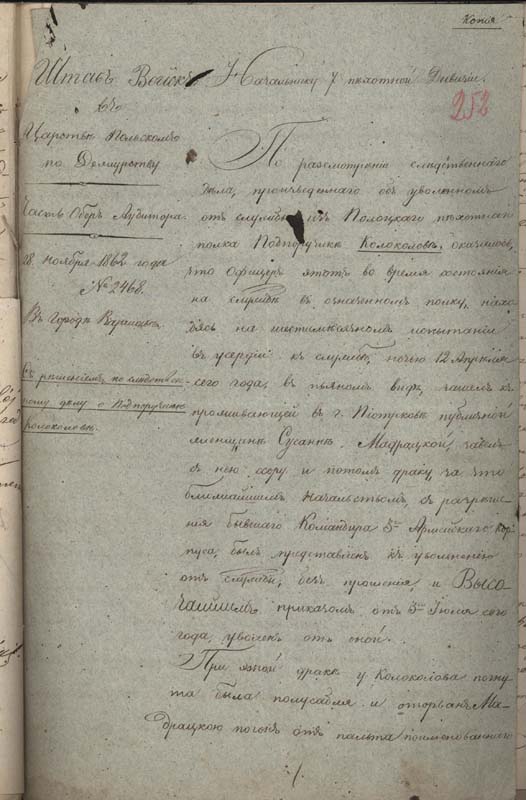 Копія
252
Штабъ Войскъ
въ
Царствѣ Польскомъ
по Дежурству
Часть Оберъ Аудитора.
28 ноября 1862 года
№ 2468.
Въ городѣ Варшавѣ.
Съ рѣшеніемъ по слѣдствен-
ному дѣлу о Подпоручикѣ
Колоколовѣ.
Начальнику 7 пѣхотной Дивизіи.
По разсмотрѣніи слѣдственнаго
дѣла, произведеннаго объ уволенномъ
отъ службы изъ Полоцкаго пѣхотнаго
полка Подпоручикѣ Колоколовѣ, оказалось,
что офицеръ этотъ во время состоянія
на службѣ въ означенномъ полку, нахо-
дясь на шестимѣсячномъ испытаніи
въ усердіи къ службѣ, ночью 12 Апрѣля
сего года, въ пьяномъ видѣ, зашелъ къ
проживающей въ г. Піотрковѣ публичной
женщинѣ Сусаннѣ Мадрацкой, завелъ
съ нею ссору и потомъ драку, за что
ближайшимъ Начальствомъ, съ разрѣше-
нія бывшаго Командира 3го Армейскаго Кор-
пуса, былъ представленъ къ увольненію
отъ службы, безъ прошенія, и Высо-
чайшимъ приказомъ отъ 3го Іюля сего
года, уволенъ отъ оной.
При этой дракѣ у Колоколова погну-
та была полусабля и оторванъ Ма-
драцкою погонъ отъ пальто поименованнаго